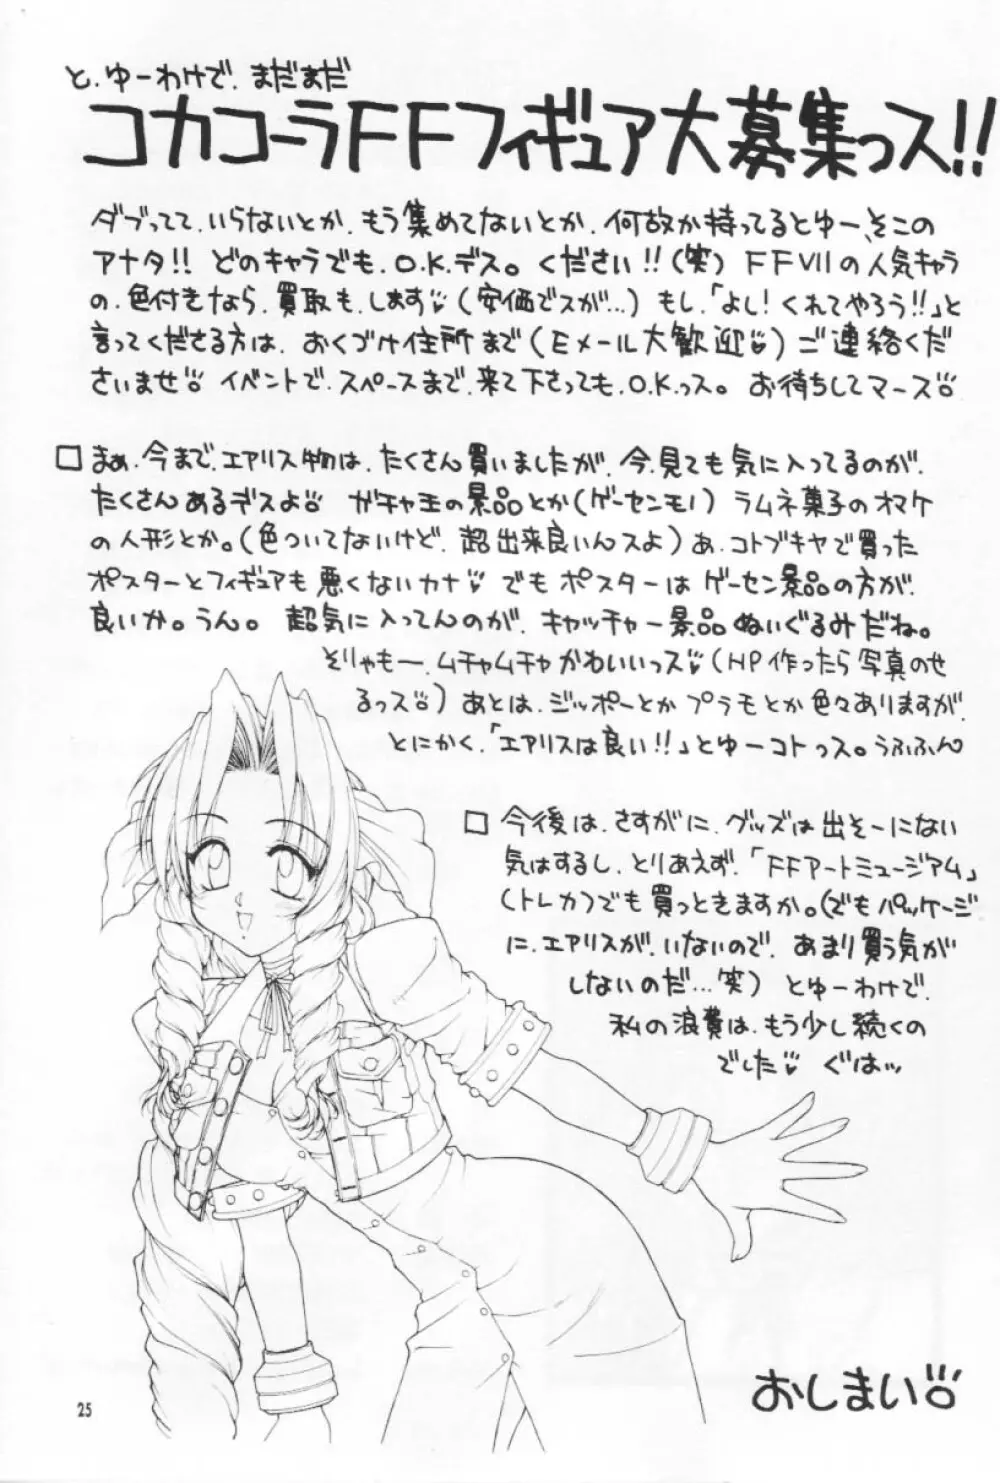 と、ゆーわけで、まだまだ
コカコーラFFフィギュア大募集っス!!
ダブってて、いらないとか、もう集めてないとか、何故か持ってるとゆー、そこの
アナタ!! どのキャラでも、O.K.デス。ください!!(笑) FFⅦの人気キャラ
の、色付きなら、買取も、します(安価でスが…)もし、「よし!くれてやろう!!」と
言ってくださる方は、おくづけ住所まで(Eメール大歓迎)ご連絡くだ
さいませ イベントで、スペースまで、来て下さっても、O.K.っス。お待ちしてマース
□まぁ、今まで、エアリス物は、たくさん買いましたが、今、見ても気に入ってるのが、
たくさんあるデスよ ガチャ玉の景品とか(ゲーセンモノ)ラムネ菓子のオマケ
の人形とか。(色ついてないけど、超出来良いんスよ)あ、コトブキヤで買った
ポスターとフィギュアも悪くないカナ でもポスターはゲーセン景品の方が、
良いか。うん。 超気に入ってんのが、キャッチャー景品ぬいぐるみだね。
そりゃもー、ムチャムチャかわいいっズ(HP作ったら写真のせ
るっズ)あとは、ジッポーとかプラモとか色々ありますが、
とにかく、「エアリスは良い!!」とゆーコトっス。うふふん
□今後は、さすがに、グッズは出そーにない
気はするし、とりあえず、「FFアートミュージアム」
(トレカ)でも買っときますか。(でもパッケージ
に、エアリスが、いないので、あまり買う気が
しないのだ…笑)とゆーわけで、
私の浪費は、もう少し続くの
でした ぐはッ
おしまい
25